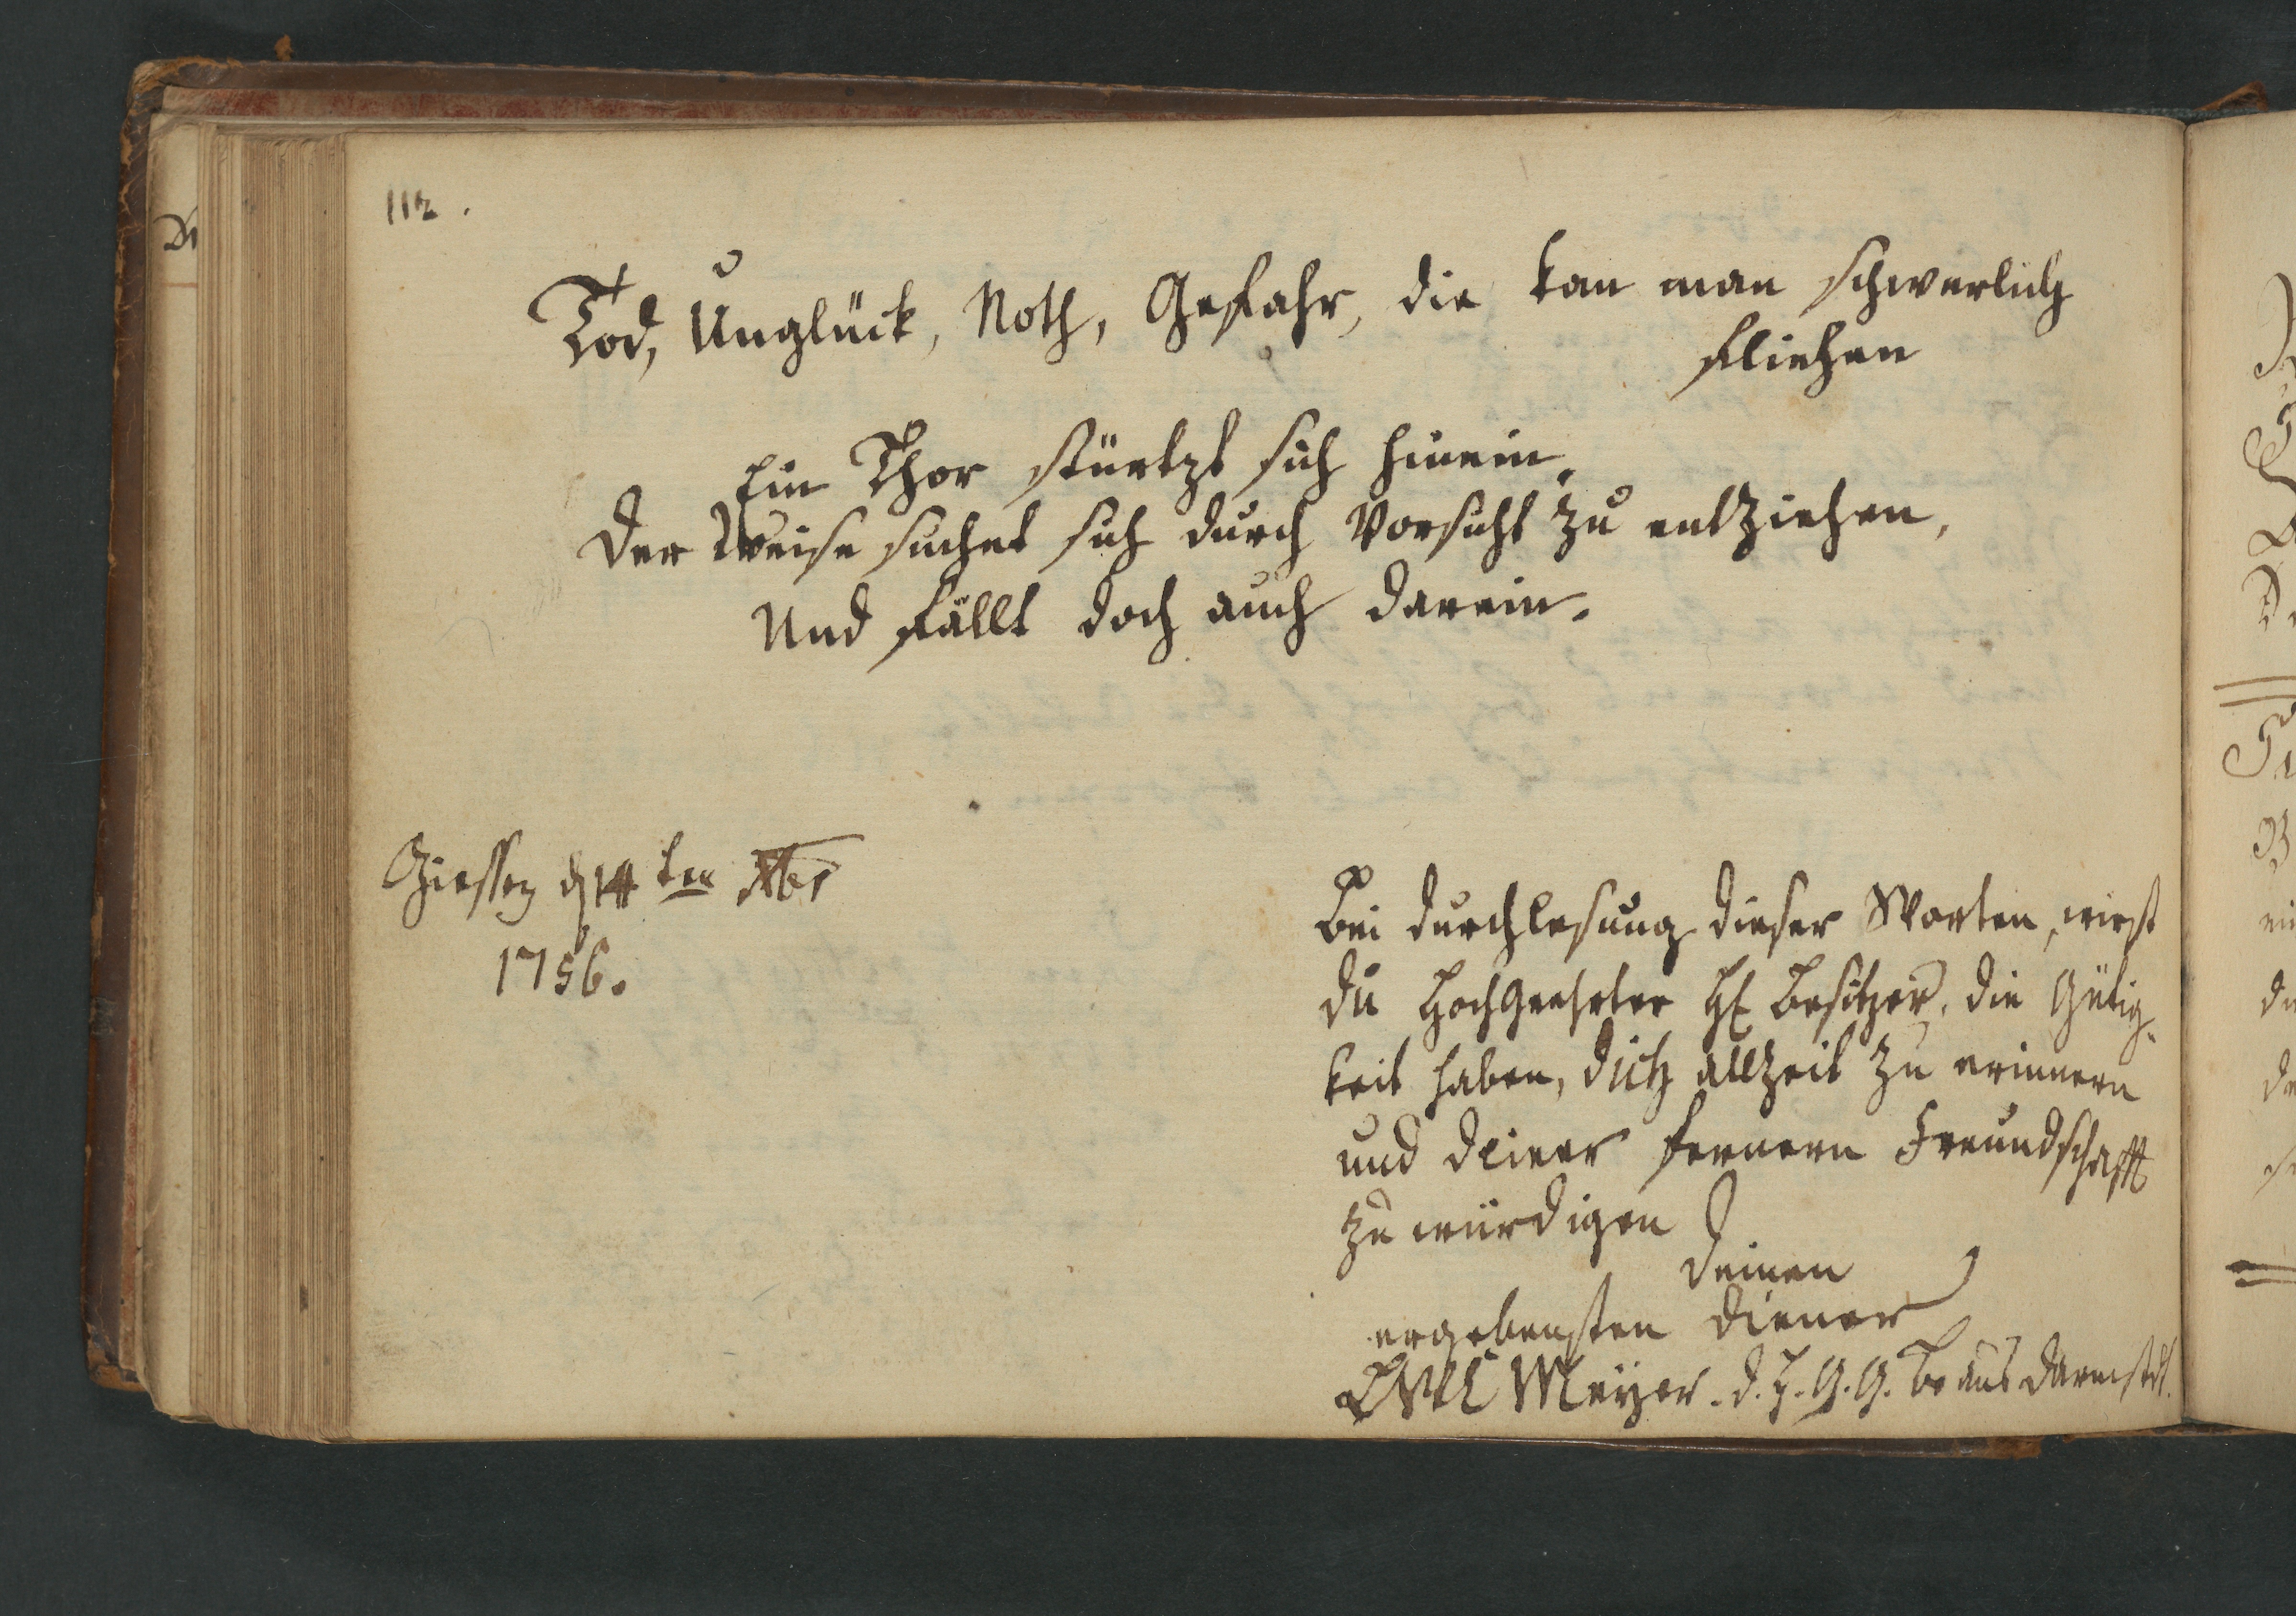 112.
Tod, Unglück, Noth, Gefahr, die kan man schwerlich
fliehen
Ein Thor stürtzt sich hinein,
Der Weise suchet sich durch Vorsicht zu entziehen,
Und fällt doch auch darein.
Giessen d 14 ten Xbr
1756.
Bei durchlesung dieser Worten, wirst
du HochGeehrter H Besitzer, die Gütig-
keit haben, dich allzeit zu erinnern
und deiner fernern Freundschafft
zu würdigen
Deinen
ergebensten Diener
Meyer. d. G. G. aus Darmstdt.